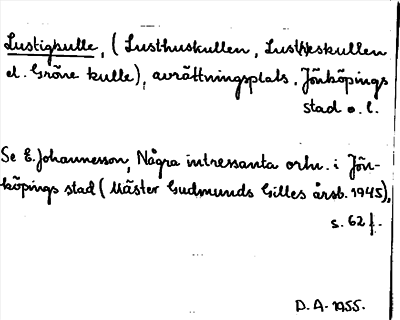 Lustigkulle, (Lusthuskullen, Lustkeskullen
el. Gröne kulle), avrättningsplats. Jönköpings
stad o. l.
Se E. Johannesson, Några intressanta ortn. i Jön-
köpings stad (Mäster Gudmunds Gilles årsb. 1945),
s. 62 f.
D. A. 1955.